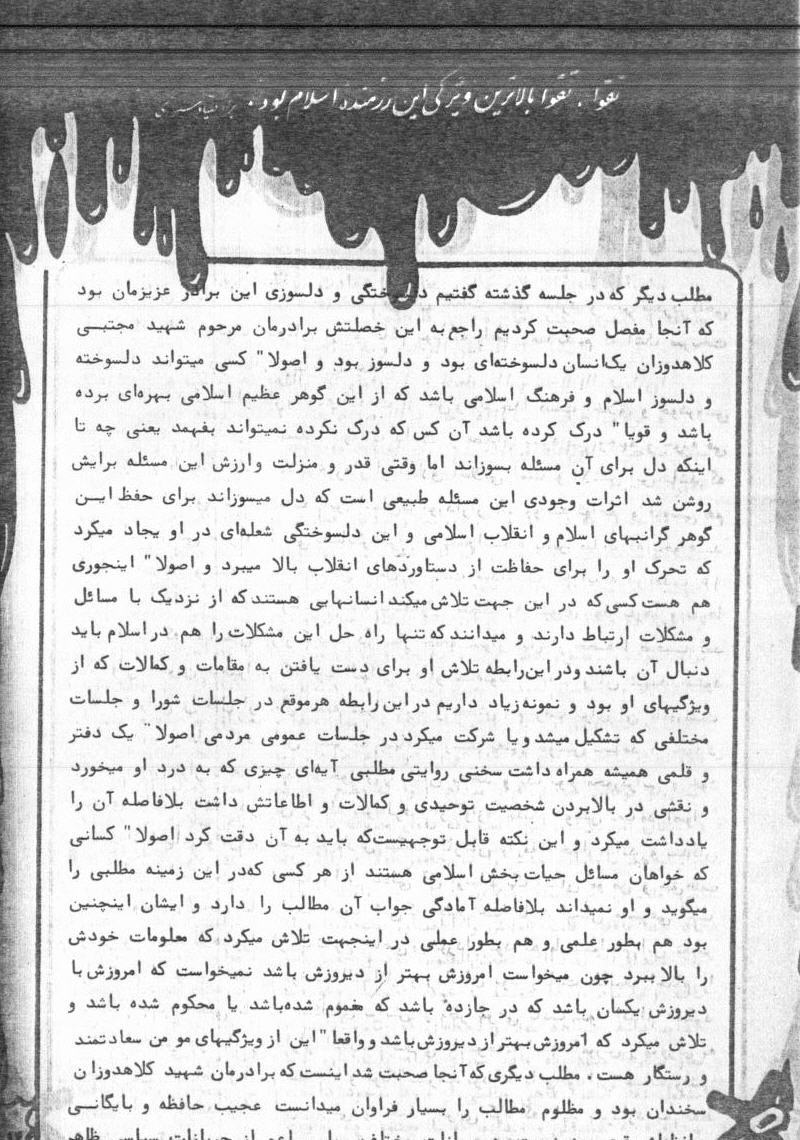 تقوا. تقوا بالاترین ویژگی این رزمنده اسلام بود.
مطلب دیگر که در جلسه گذشته گفتیم دلسوختگی و دلسوزی این برادر عزیزمان بود
که آنجا مفصل صحبت کردیم راجع به این خصلتش برادرمان مرحوم شهید مجتبی
کلاهدوزان یک‌انسان دلسوخته‌ای بود و دلسوز بود و اصولا" کسی میتواند دلسوخته
و دلسوز اسلام و فرهنگ اسلامی باشد که از این گوهر عظیم اسلامی بهره‌ای برده
باشد و قویا" درک کرده باشد آن کس که درک نکرده نمیتواند بفهمد یعنی چه تا
اینکه دل برای آن مسئله بسوزاند اما وقتی قدر و منزلت و ارزش این مسئله برایش
روشن شد اثرات وجودی این مسئله طبیعی است که دل میسوزاند برای حفظ این
گوهر گرانبهای اسلام و انقلاب اسلامی و این دلسوختگی شعله‌ای در او یجاد میکرد
که تحرک او را برای حفاظت از دستاوردهای انقلاب بالا میبرد و اصولا" اینجوری
هم هست کسی که در این جهت تلاش میکند انسانهایی هستند که از نزدیک با مسائل
و مشکلات ارتباط دارند و میدانند که تنها راه حل این مشکلات را هم در اسلام باید
دنبال آن باشند ودر این‌رابطه تلاش او برای دست یافتن به مقامات و کمالات که از
ویژگیهای او بود و نمونه زیاد داریم در این رابطه هرموقع در جلسات شورا و جلسات
مختلفی که تشکیل میشد و یا شرکت میکرد در جلسات عمومی مردمی اصولا" یک دفتر
و قلمی همیشه همراه داشت سخنی روایتی مطلبی آیه‌ای چیزی که به درد او میخورد
و نقشی در بالابردن شخصیت توحیدی و کمالات و اطاعاتش داشت بلافاصله آن را
یادداشت میکرد و این نکته قابل توجهیست‌که باید به آن دقت کرد اصولا" کسانی
که خواهان مسائل حیات بخش اسلامی هستند از هر کسی که‌در این زمینه مطلبی را
میگوید و او نمیداند بلافاصله آمادگی جواب آن مطالب را دارد و ایشان اینچنین
بود هم بطور علمی و هم بطور عملی در اینجهت تلاش میکرد که معلومات خودش
را بالا ببرد چون میخواست امروزش بهتر از دیروزش باشد نمیخواست که امروزش با
دیروزش یکسان باشد که در جازده باشد که مغموم شده‌باشد یا محکوم شده باشد و
تلاش میکرد که امروزش بهتر از دیروزش باشد و واقعا" این از ویژگیهای مو من سعادتمند
و رستگار هست. مطلب دیگری که آنجا صحبت شد اینست که برادرمان شهید کلاهدوزان
سخندان بود و مظلوم مطالب را بسیار فراوان میدانست عجیب حافظه و بایگانی